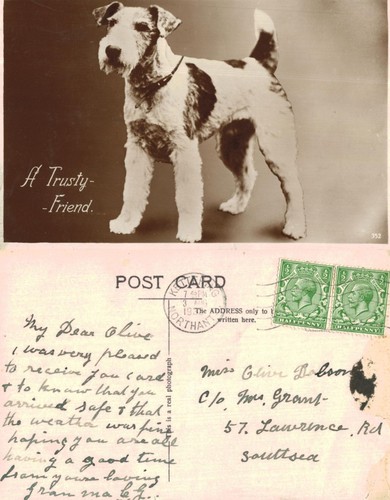 A Trusty-
-Friend.
POST CARD
The ADDRESS only to b
written here.
is is a real photograph
HALFPENNY
HALFPENNY
NORTHANTS
My Dear Olive
I was very pleased
to receive you card
& to know that you
arrived safe & that
the weather was fine
hoping you are all
having a good time
from your loving
Grandma
Miss Olive
C/o Mrs. Grant-
57. Lawrence. Rd
Southsea